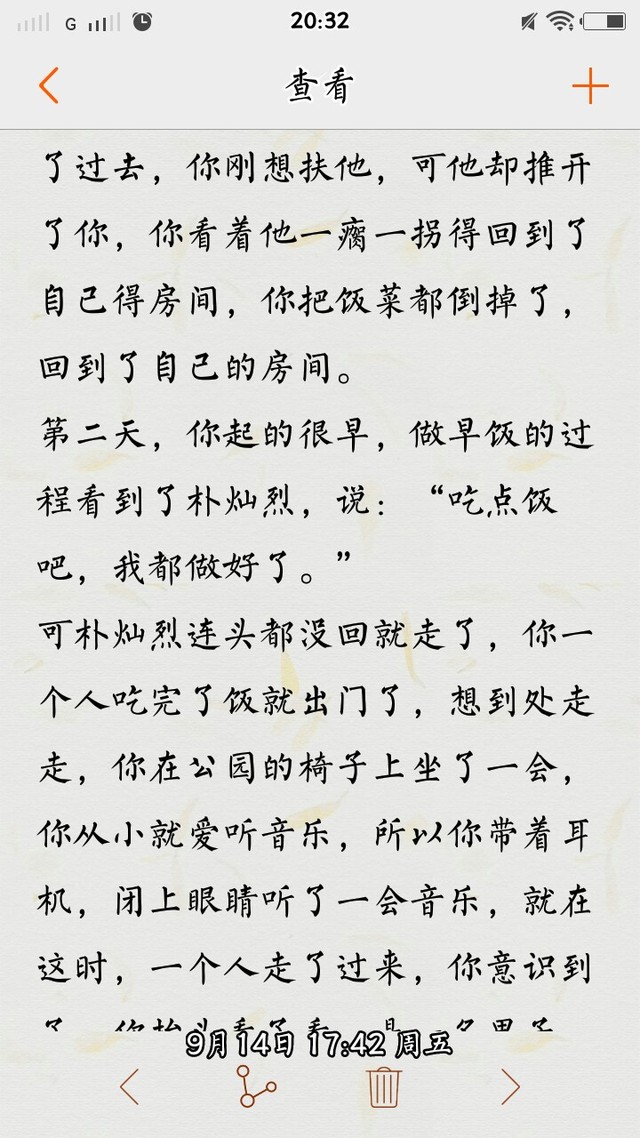 G
20:32
查看
了过去，你刚想扶他，可他却推开
了你，你看着他一瘸一拐得回到了
自己得房间，你把饭菜都倒掉了，
回到了自己的房间。
第二天，你起的很早，做早饭的过
程看到了朴灿烈，说：“吃点饭
吧，我都做好了。”
可朴灿烈连头都没回就走了，你一
个人吃完了饭就出门了，想到处走
走，你在公园的椅子上坐了一会，
你从小就爱听音乐，所以你带着耳
机，闭上眼睛听了一会音乐，就在
这时，一个人走了过来，你意识到
9月14日 17:42 周五